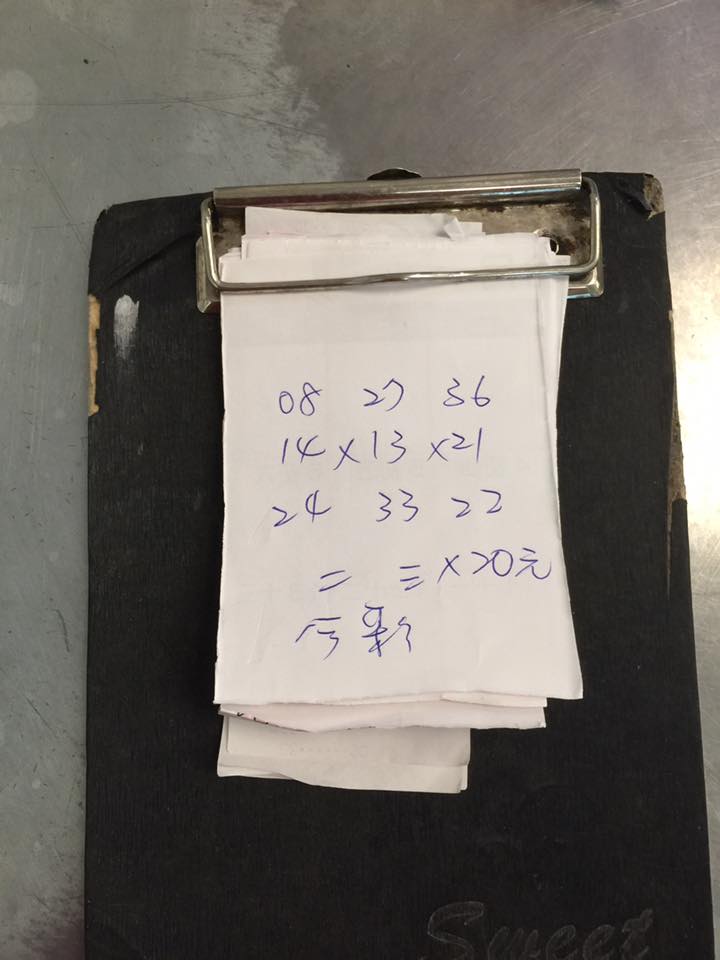 08 27 36
14 × 13 × 21
24 33 22
二 三 × 20元
今彩
Sweet